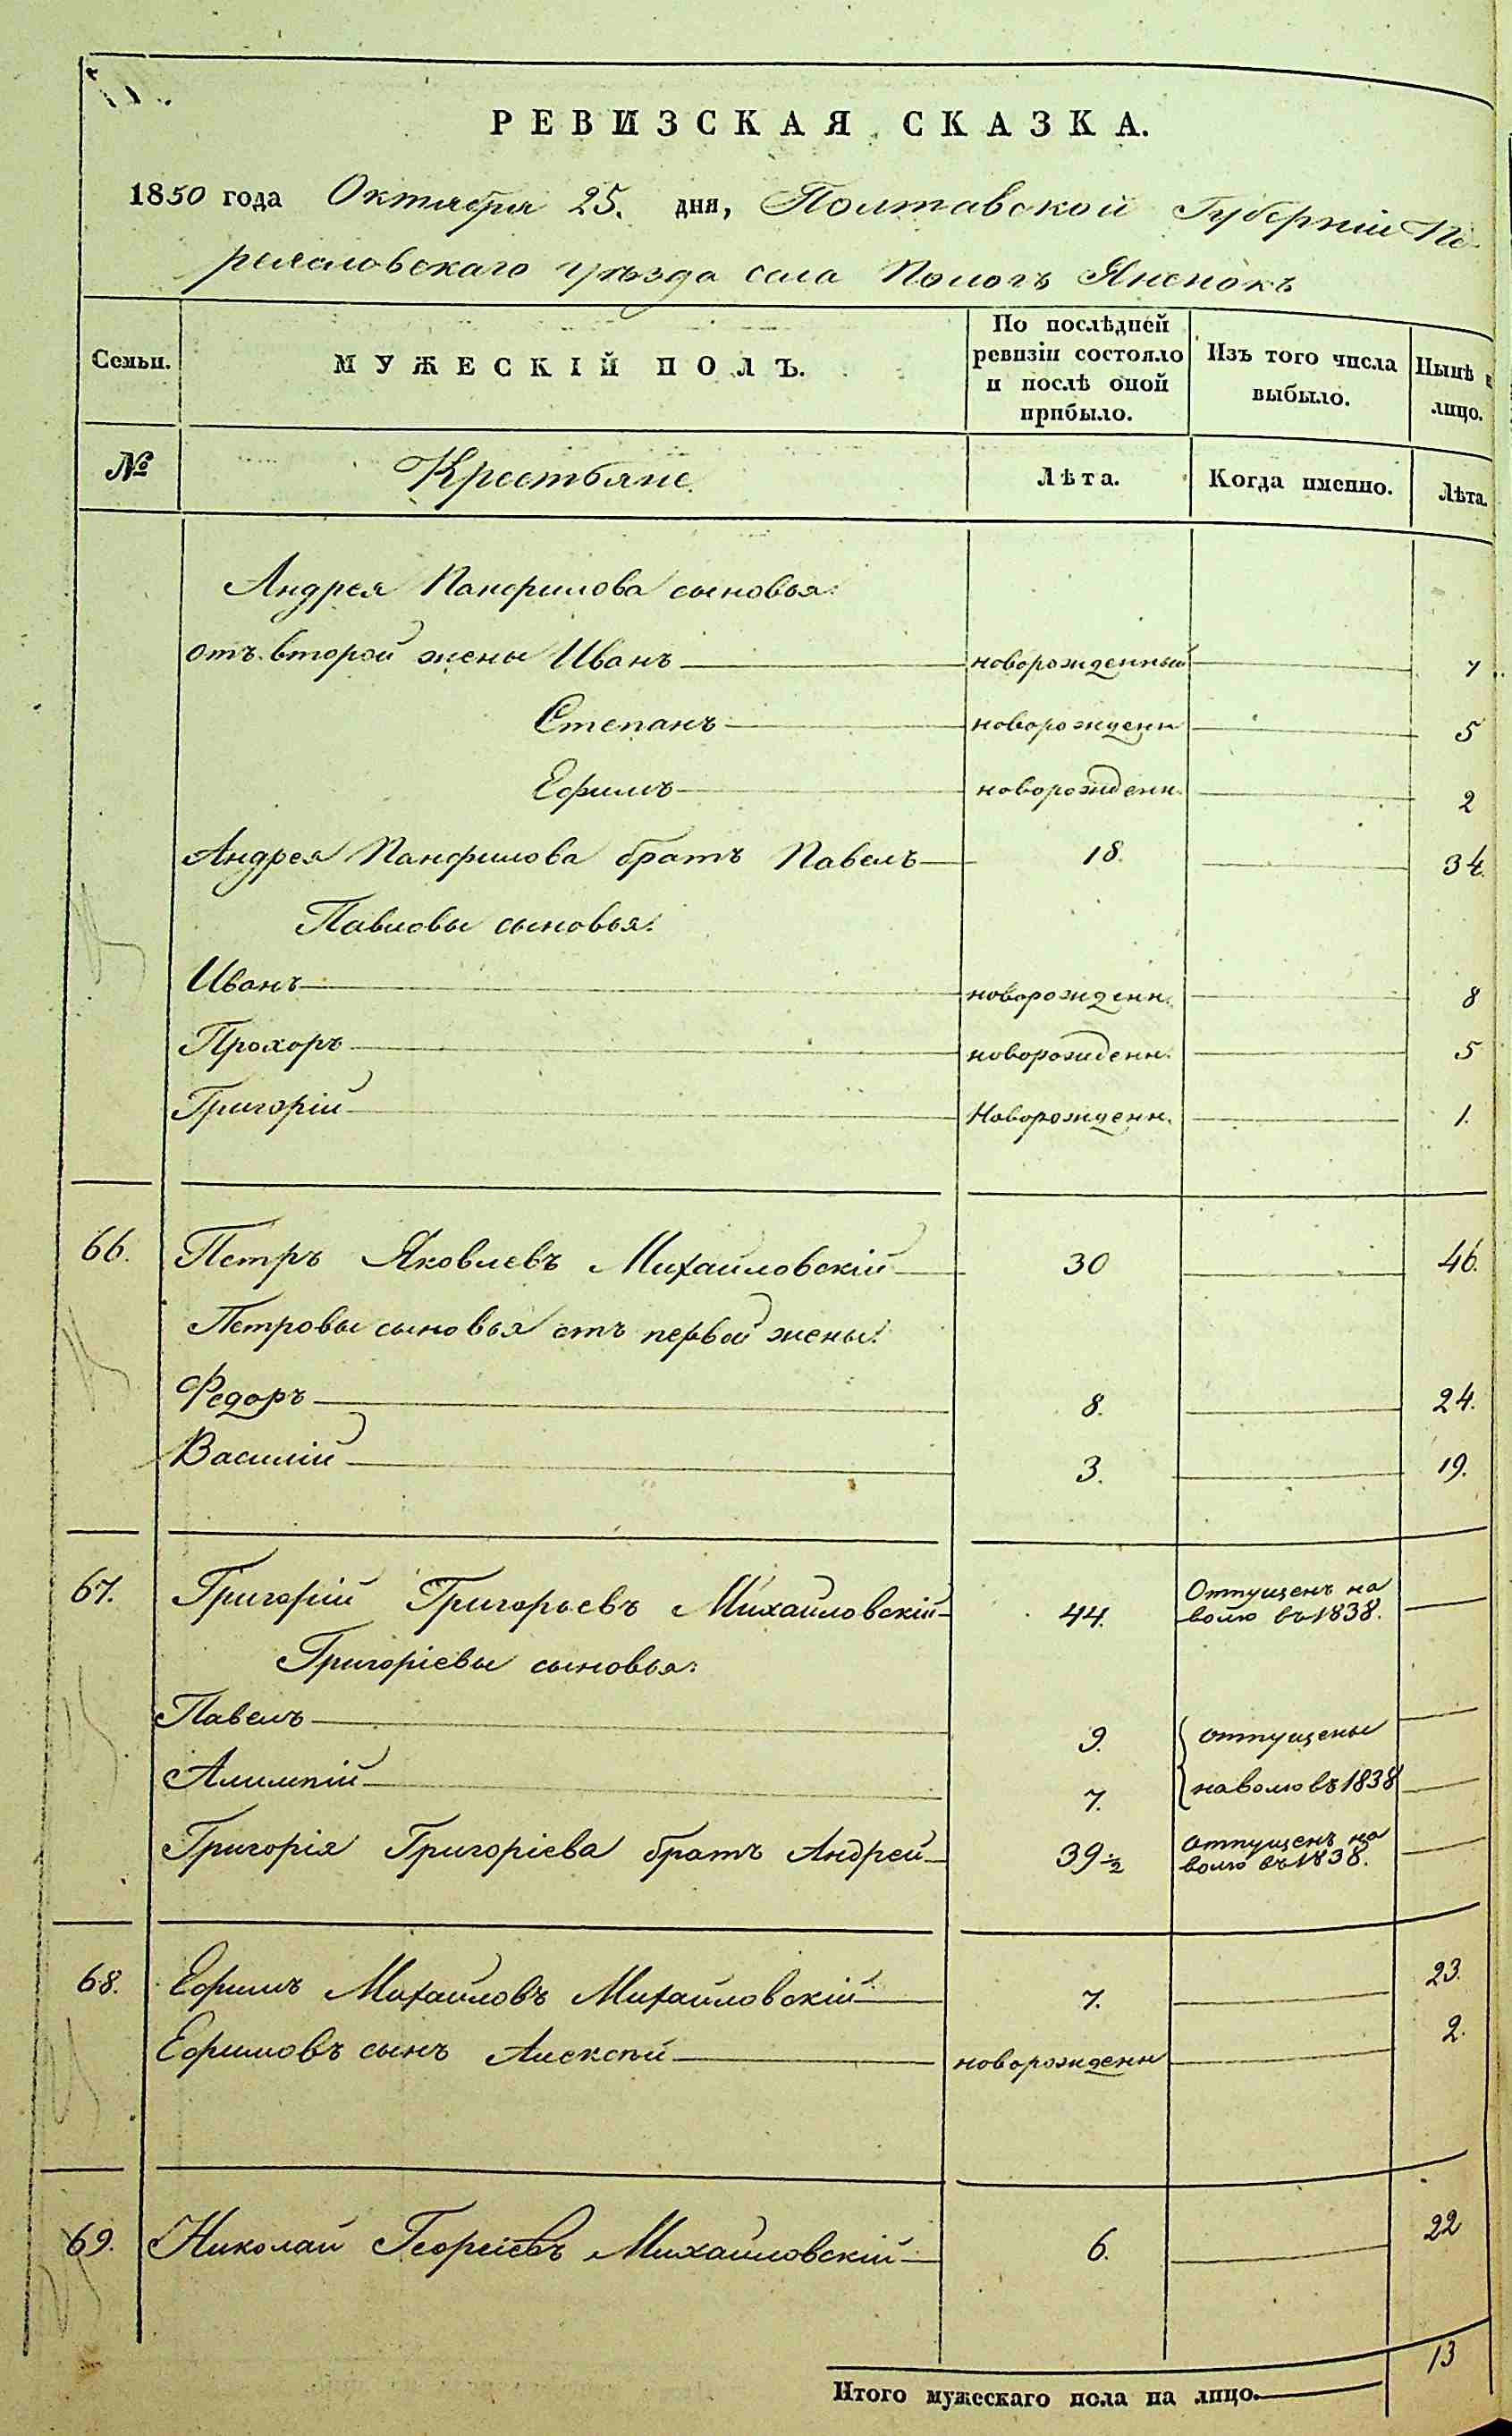 РЕВИЗСКАЯ СКАЗКА.
1850 года Октября 25. дня, Полтавской Губерніи Пе-
реяславскаго уѣзда села Пологъ Яненокъ
Семьи.
МУЖЕСКІЙ ПОЛЪ.
По послѣдней ревизіи состояло и послѣ оной прибыло.
Изъ того числа выбыло.
Нынѣ в лицо.
№ Крестьяне. Лѣта. Когда именно. Лѣта.
Андрея Панфилова сыновья:
отъ второй жены Иванъ новорожденный 7
Степанъ новорожденн 5
Ефимъ новорожденн. 2
Андрея Панфилова братъ Павелъ 18. 34.
Павловы сыновья:
Иванъ новорожденн. 8
Прохоръ новорожденн. 5
Григорій Новорожденн. 1.
66. Петръ Яковлевъ Михайловскій 30 46.
Петровы сыновья отъ первой жены:
Федоръ 8. 24.
Василій 3. 19.
67. Григорій Григорьевъ Михайловскій 44. Отпущенъ на волю въ 1838.
Григоріевы сыновья:
Павелъ 9. отпущены
Алимпій 7. на волю въ 1838
Григорія Григоріева братъ Андрей 39 ½ отпущенъ на волю въ 1838.
68. Ефимъ Михайловъ Михайловскій 7. 23.
Ефимовъ сынъ Алексѣй новорожденн 2.
69. Николай Георгіевъ Михайловскій 6. 22
Итого мужескаго пола на лицо. 13